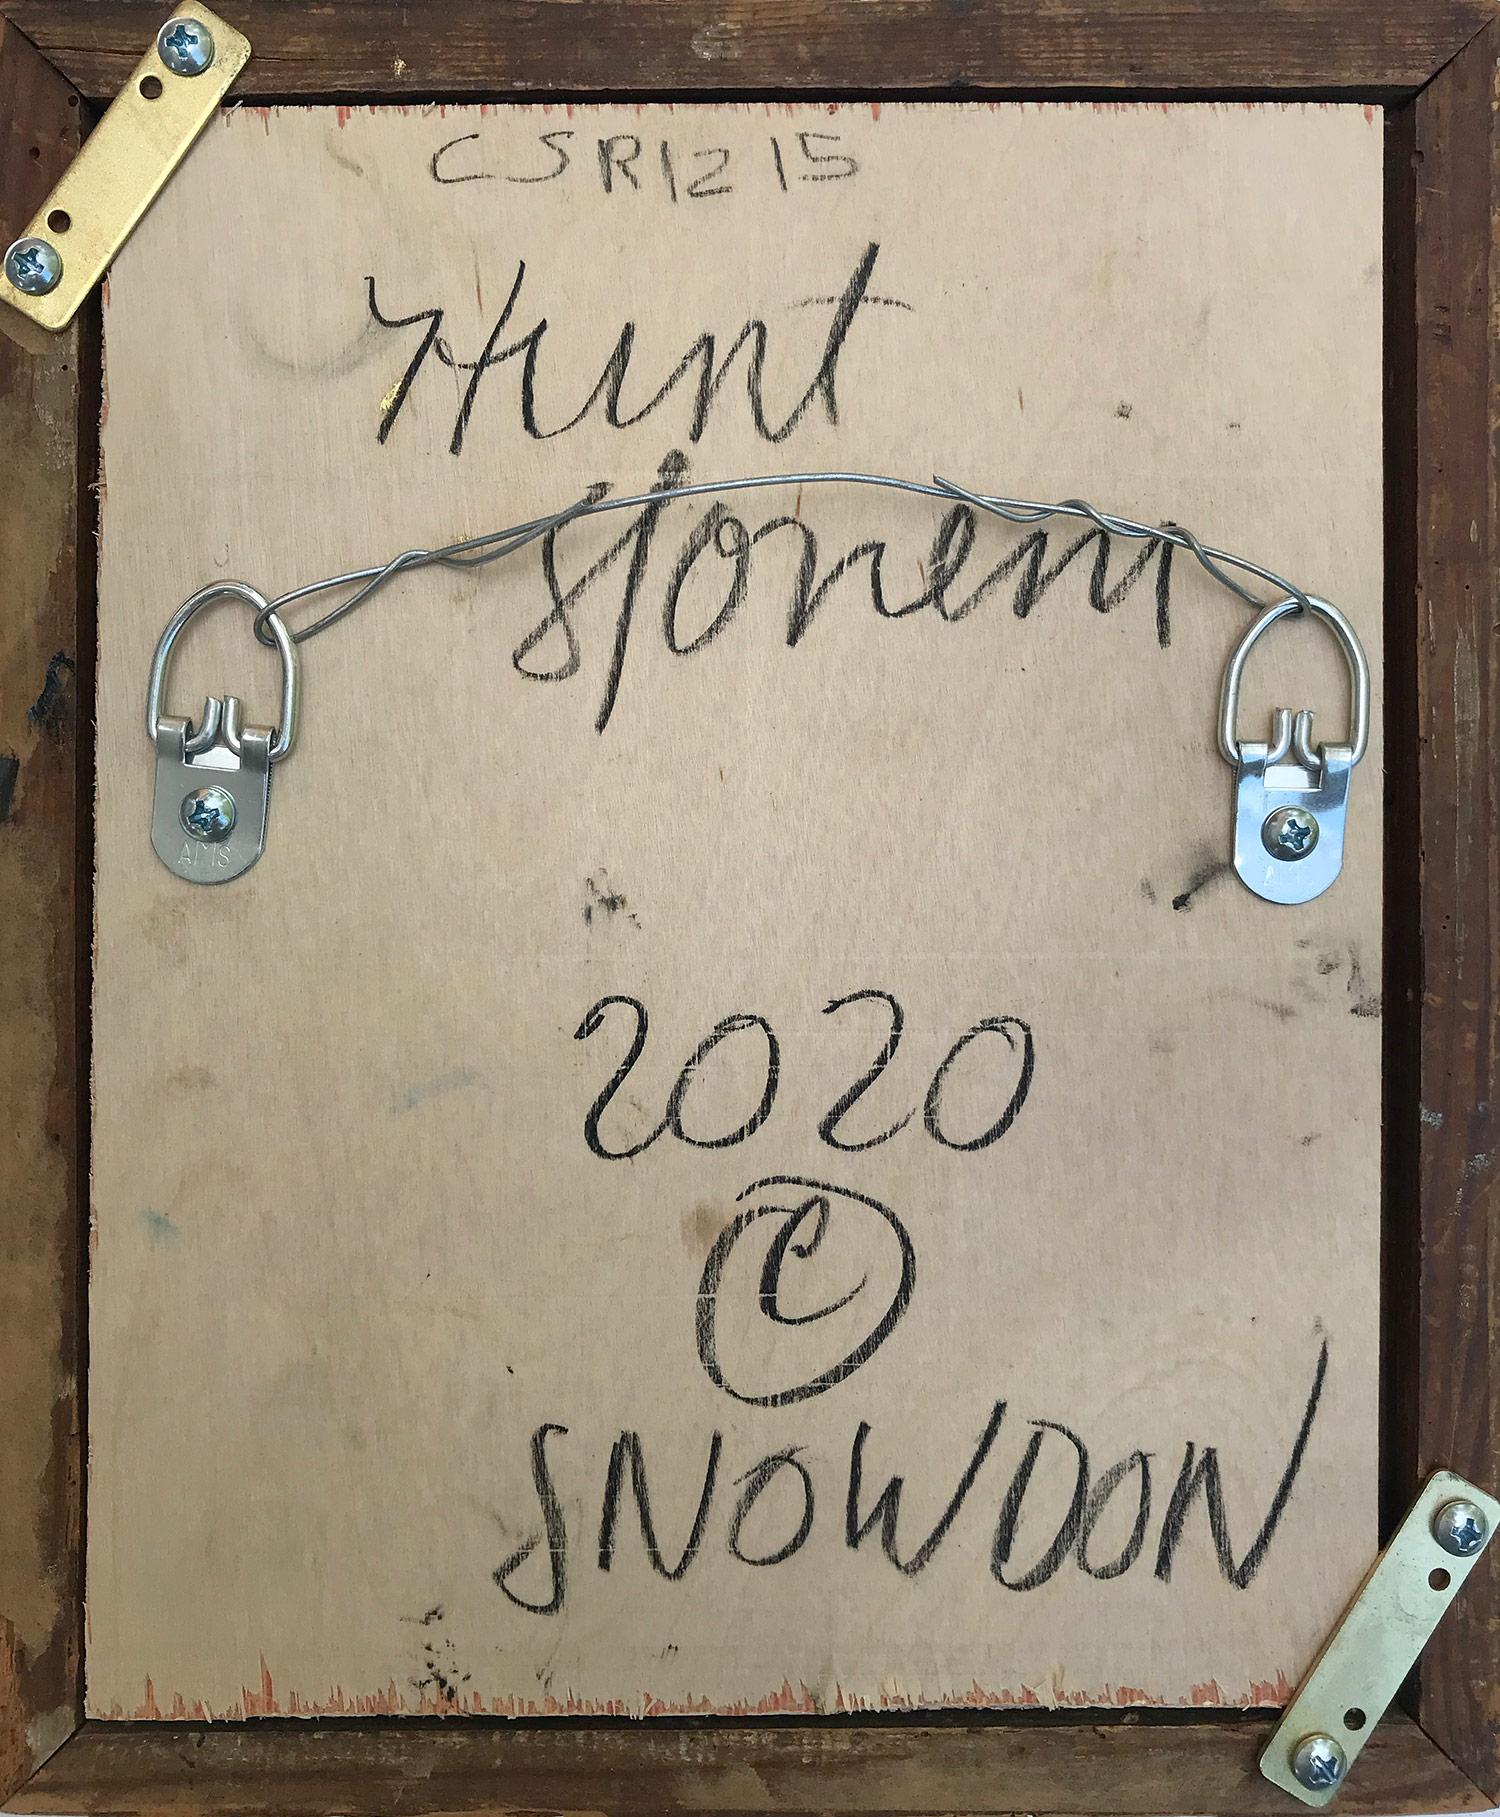 CSR1215
Hunt
Slonem
2020
©
SNOWDON